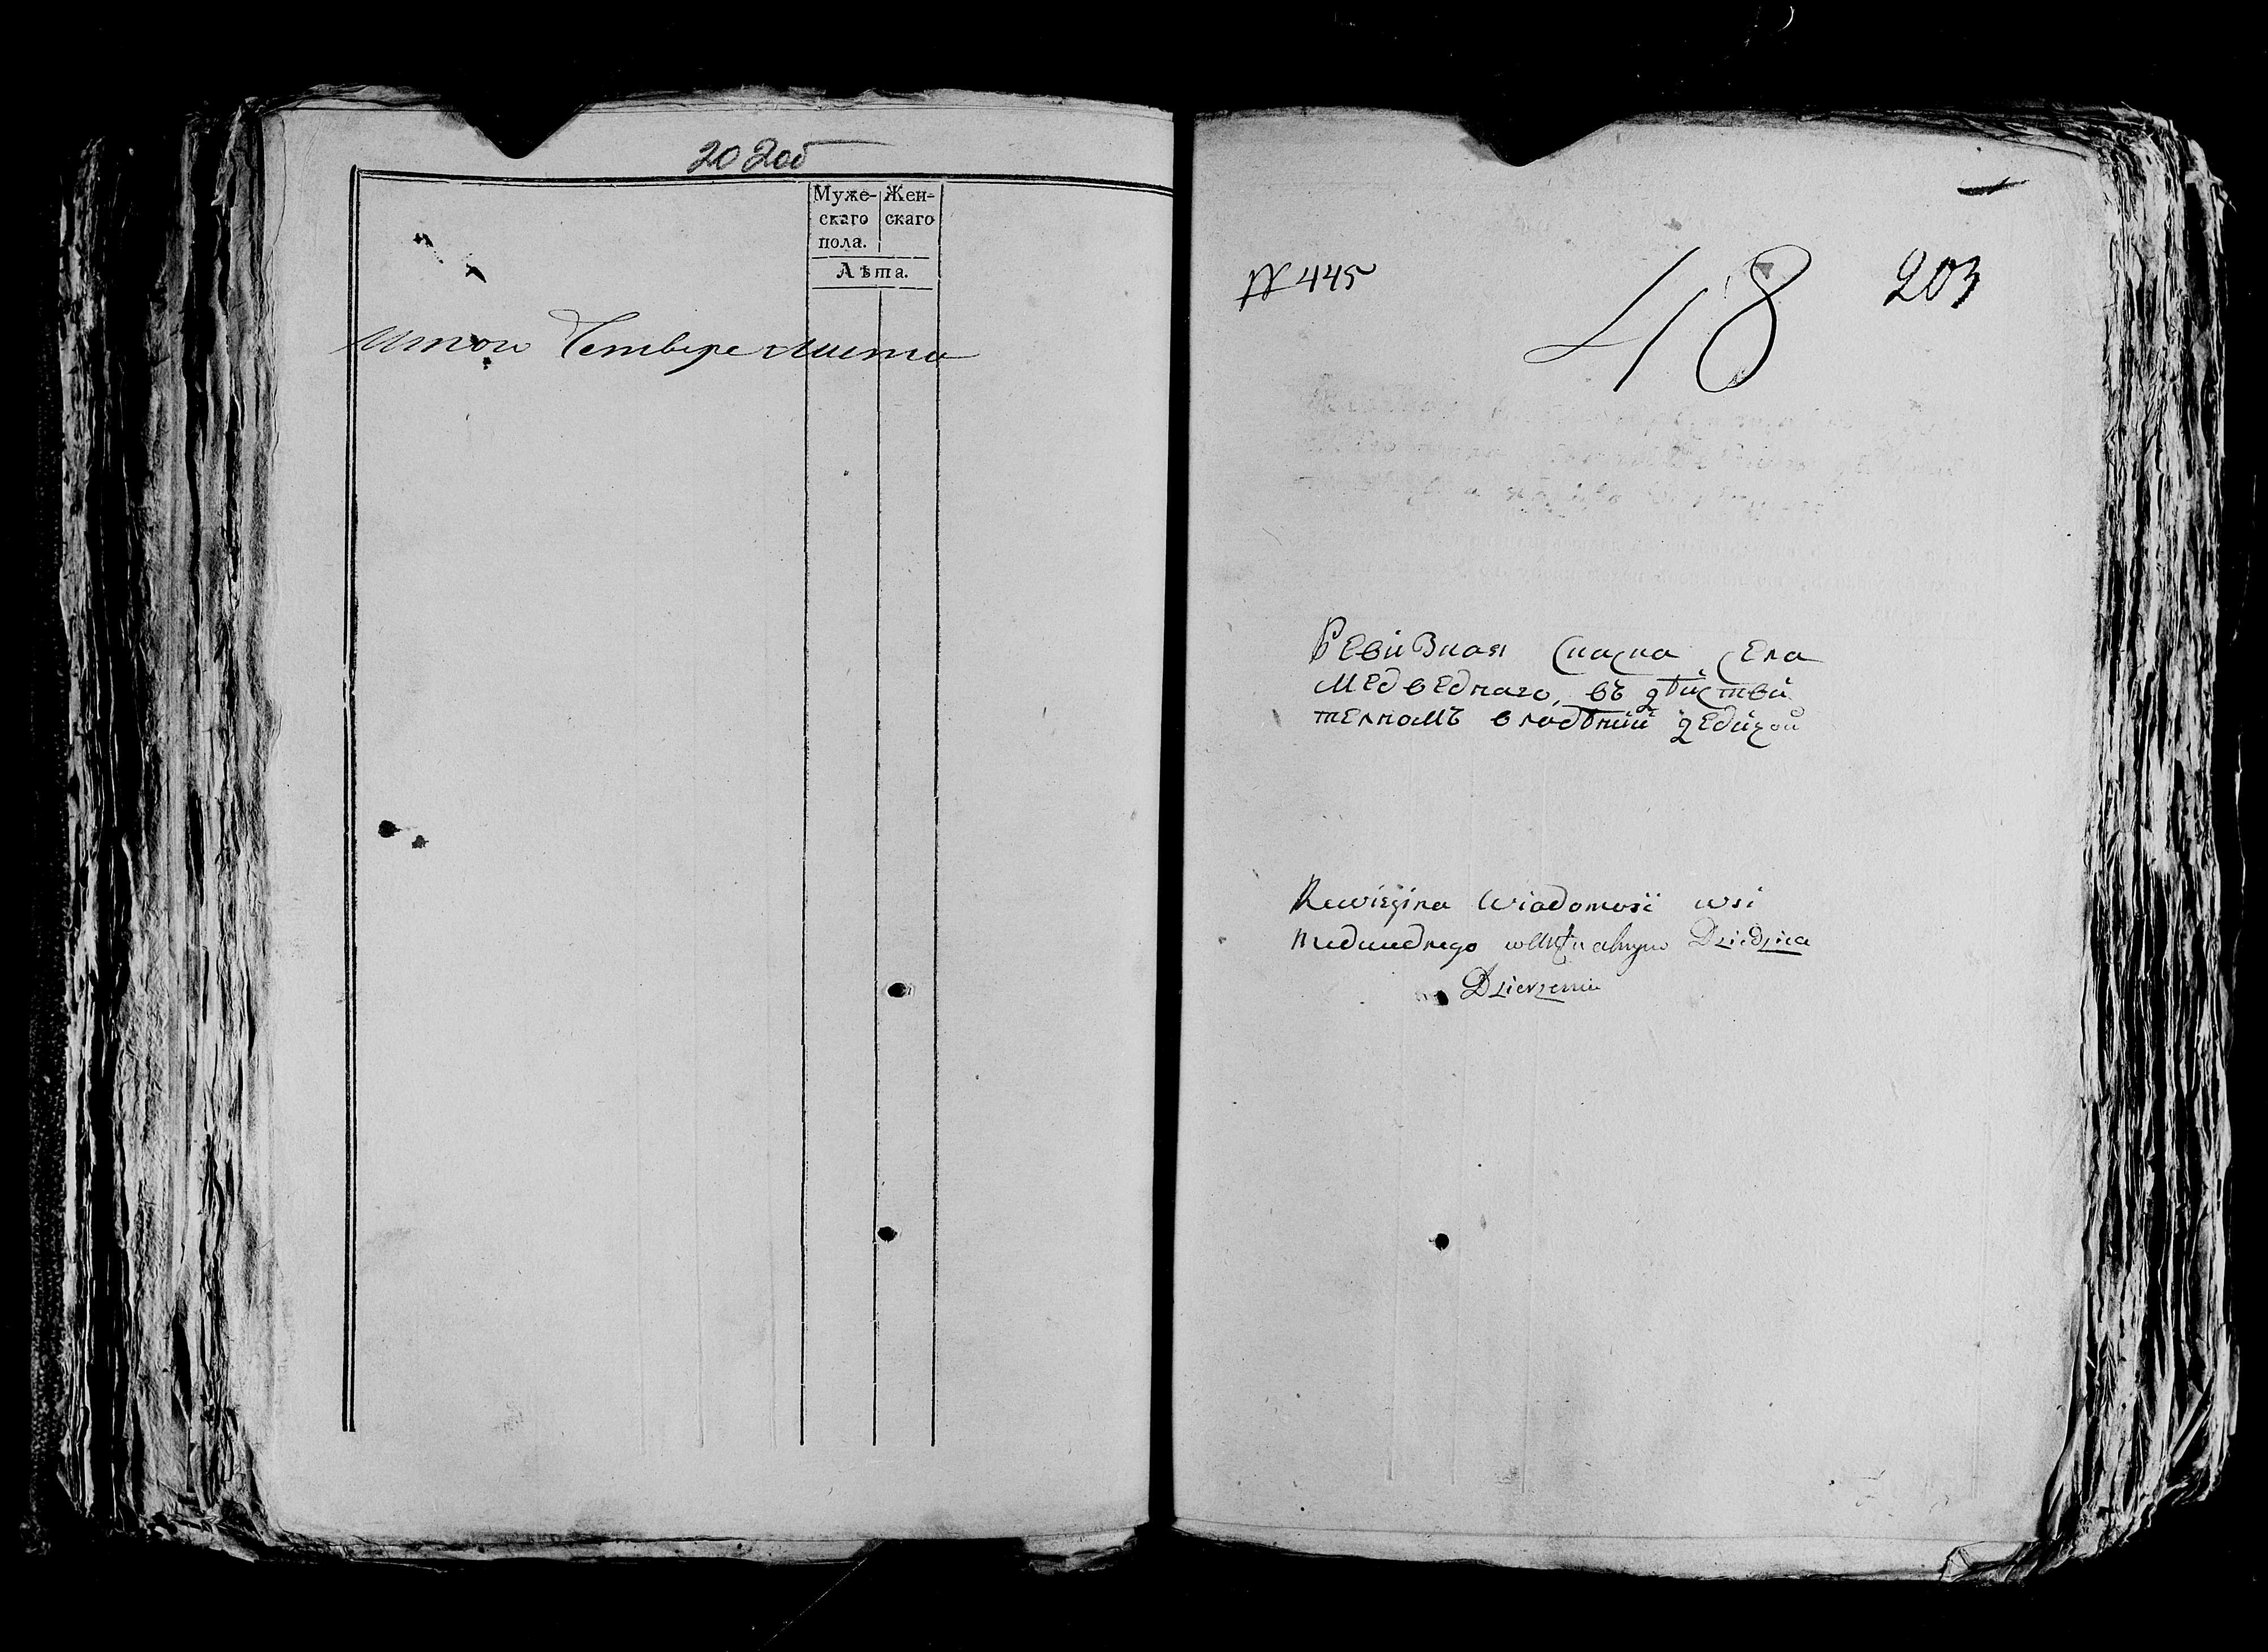 Муже-
скаго
пола.
Жен-
скаго
Лѣта.
Итого Четверо листа
N 445
48
203
Ревизная Сказка Села
Медведнаго, въ дѣйстви
телномъ владѣнии дедичой
Rewizyina Wiadomość wsi
Medwednego Dziedzica
Dzierzeniu